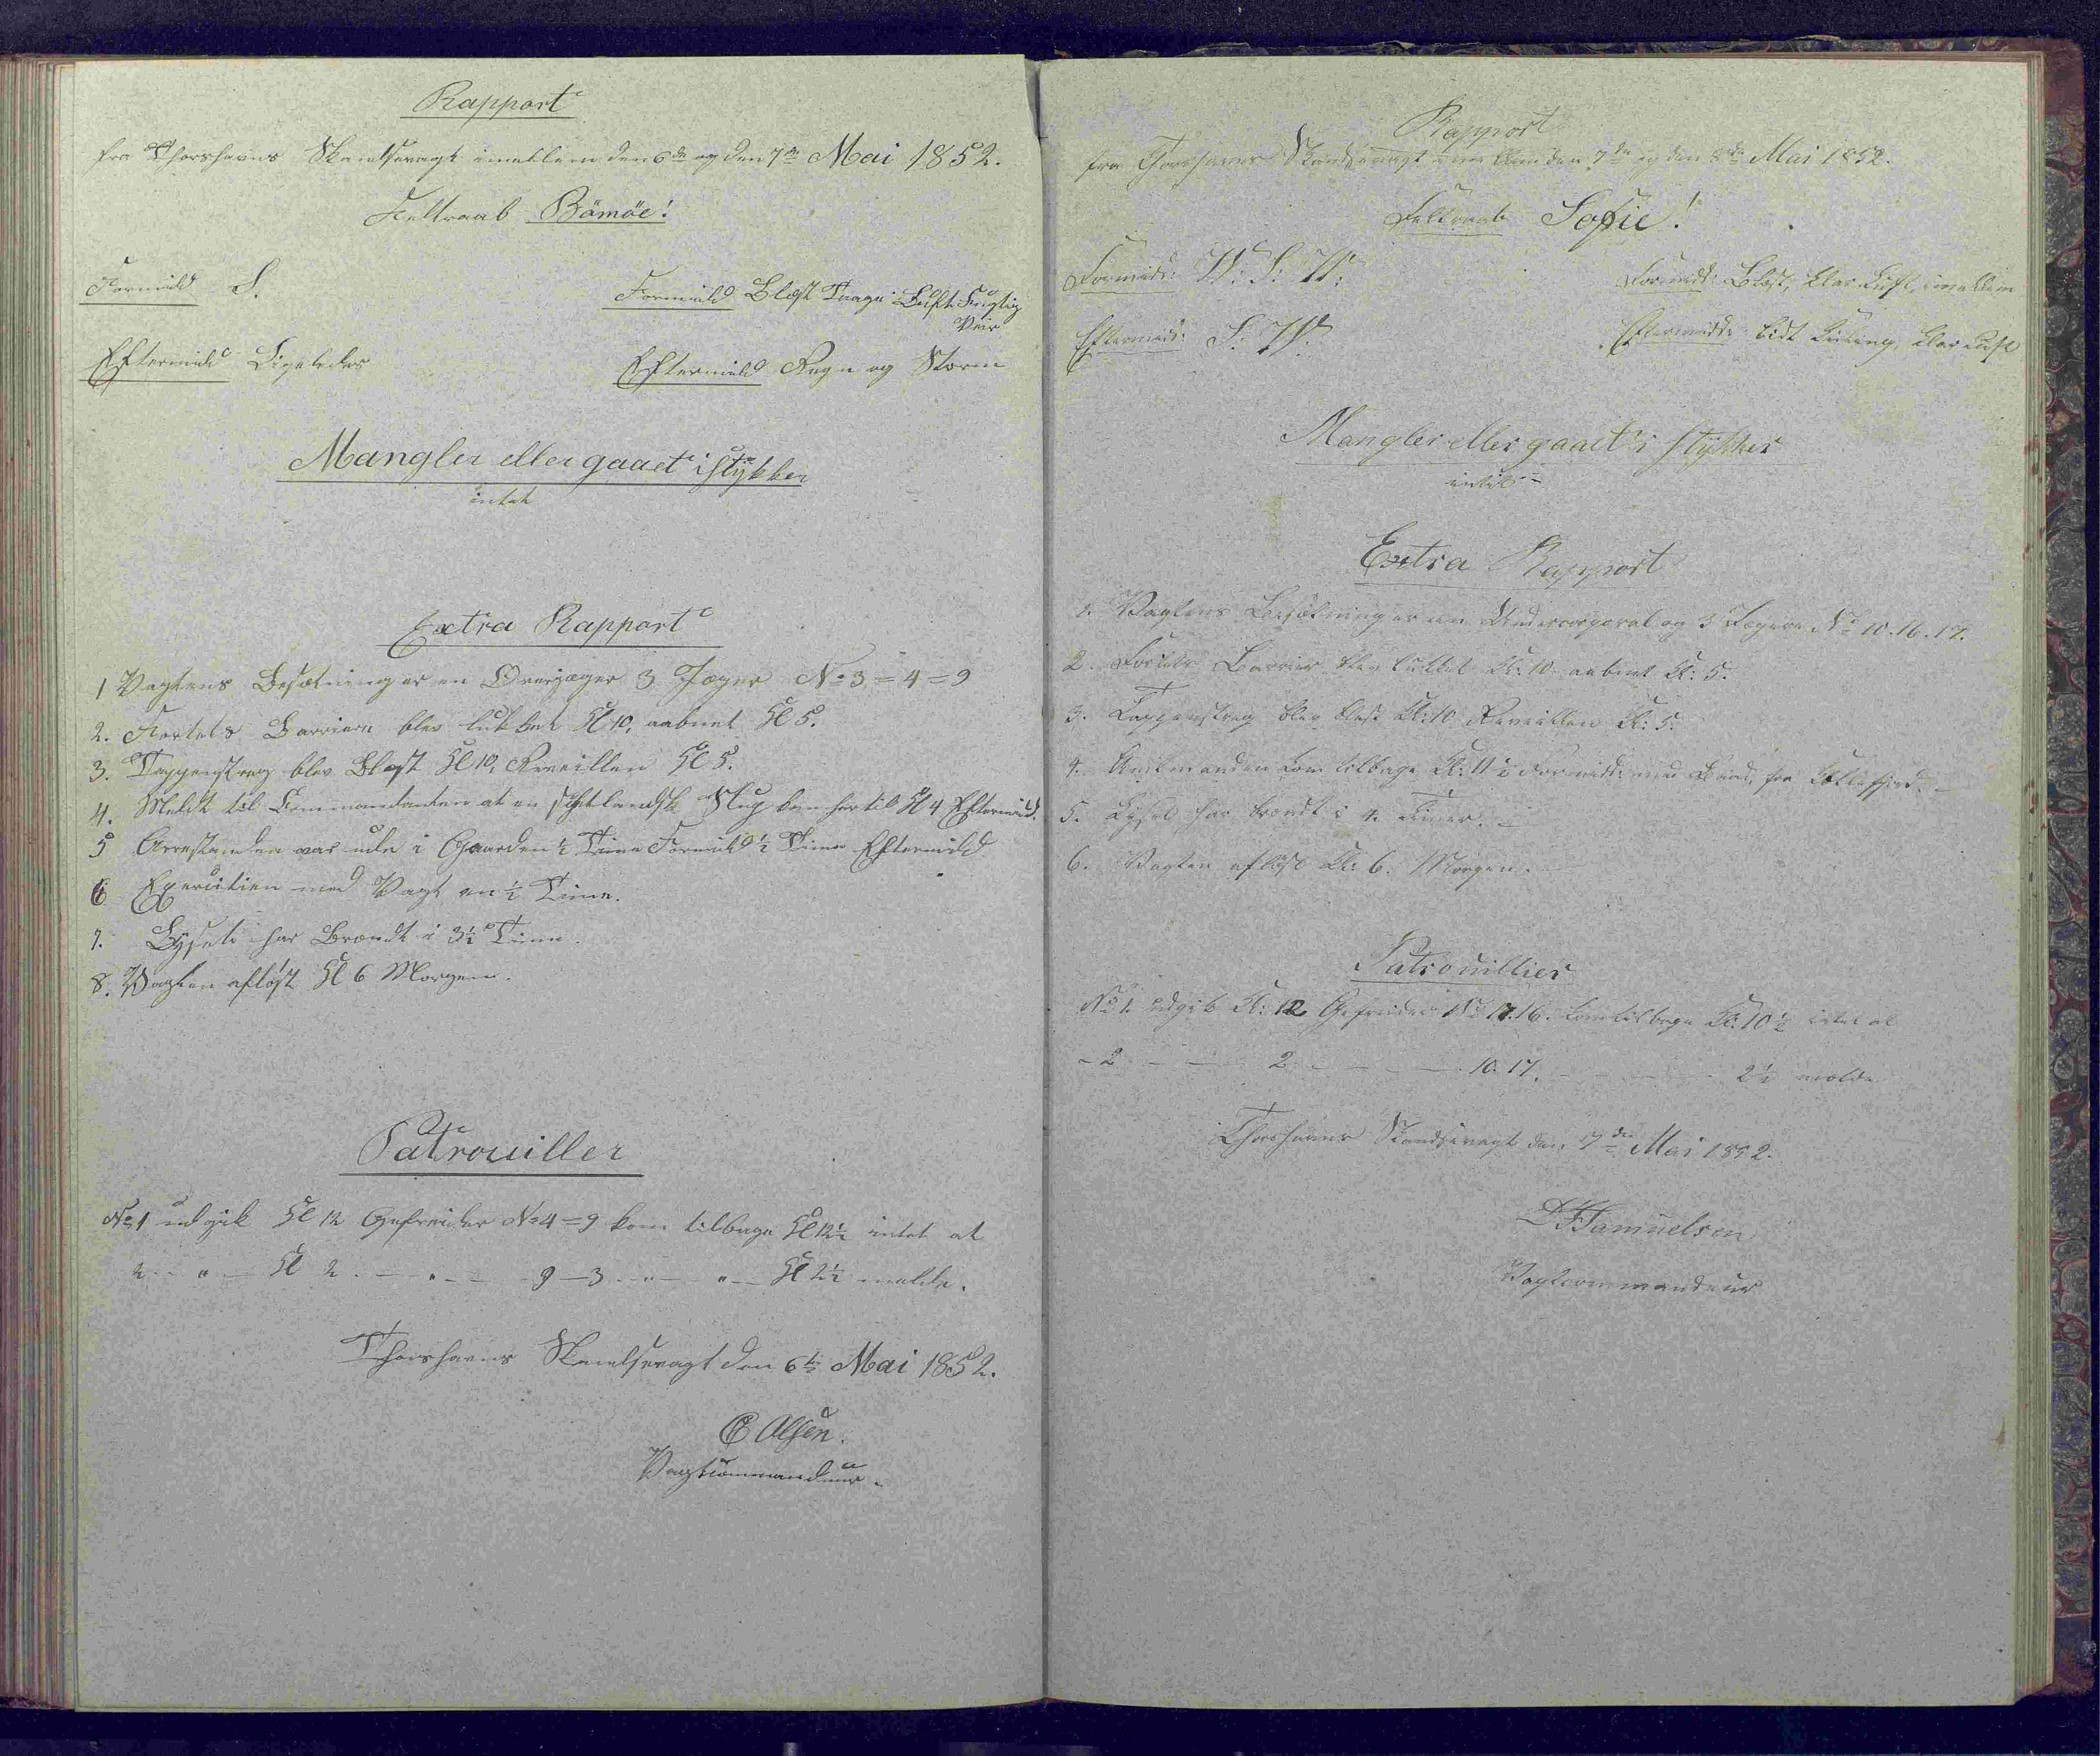 Rapport
fra Thorshavns Skandsevagt imellem den 6te og den 7de Mai 1852.
Feltraab Bömöe!
Formidd S.
Formidd Blæst Taage Luft Fugtig
Veir
Eftermidd Ligeledes
Eftermidd Regn og Storm
Mangler eller gaaet i stÿkker
intet
Extra Rapport
1 Vagtens Besætning er en Overjæger 3 Jæger No 3 = 4 = 9
2. Fortets Barriere blev lukket Kl 10, aabnet Kl 5.
3. Tappenstreg blev Blæst Kl 10, Reveillen Kl 5.
4. Meldt til Commandanten at en schetlandsk Slup kom her til Kl 4 Eftermid.
5 Arrestanden var ude i Gaarden ½ Time Formidd ½ Time Eftermidd
6 Exercitien med Vagt en ½ Time.
7. Lyset har Brændt i 3½ Time.
8. Vagten afløst Kl 6 Morgen.
Patrouiller
No 1 udgik Kl 12 Gefreider No 4 = 9 kom tilbage Kl 12½ intet at
2 - " - Kl 2 - " - - 9 - 3 - " - " - Kl 2½ melde.
Thorshavns Skandsevagt den 6te Mai 1852.
E Olsen.
Vagtcommandeur.
Rapport
fra Thorshavns Skandsevagt imellem den 7de og den 8de Mai 1852.
Feltraab Sofie!
Formidd: V: S: V:
Formidd: Blæst, klar Luft, imellem
Eftermidd: S: V:
Eftermidd: lidt Kuling, klar Luft
Mangler eller gaaet i stÿkker
intet
Extra Rapport
1. Vagtens Besætning er en Undercorporal og 3 Jægere No 10. 16. 17.
2. Fortets Barriere blev lukket Kl: 10 aabnet Kl: 5.
3. Tappenstreg blev blæst Kl: 10 Reveillen Kl: 5.
4. Amtmanden kom tilbage Kl: 11 i Formidd: med Baad, fra Kollefjord.
5. Lyset har brændt i 4. Timer.
6. Vagten afløst Kl: 6. Morgen.
Patrouillier
No 1. udgik Kl: 12 Gefreider No 17. 16. kom tilbage Kl: 10½ intet at
- 2 - - 2 - - - 10. 17. - - - 2½ melde
Thorshavns Skandsevagt den 7de Mai 1852.
Samuelsen
Vagtcommandeur